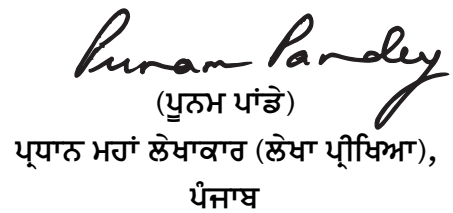 Punam Pandey
(ਪੂਨਮ ਪਾਂਡੇ)
ਪ੍ਰਧਾਨ ਮਹਾਂ ਲੇਖਾਕਾਰ (ਲੇਖਾ ਪ੍ਰੀਖਿਆ),
ਪੰਜਾਬ